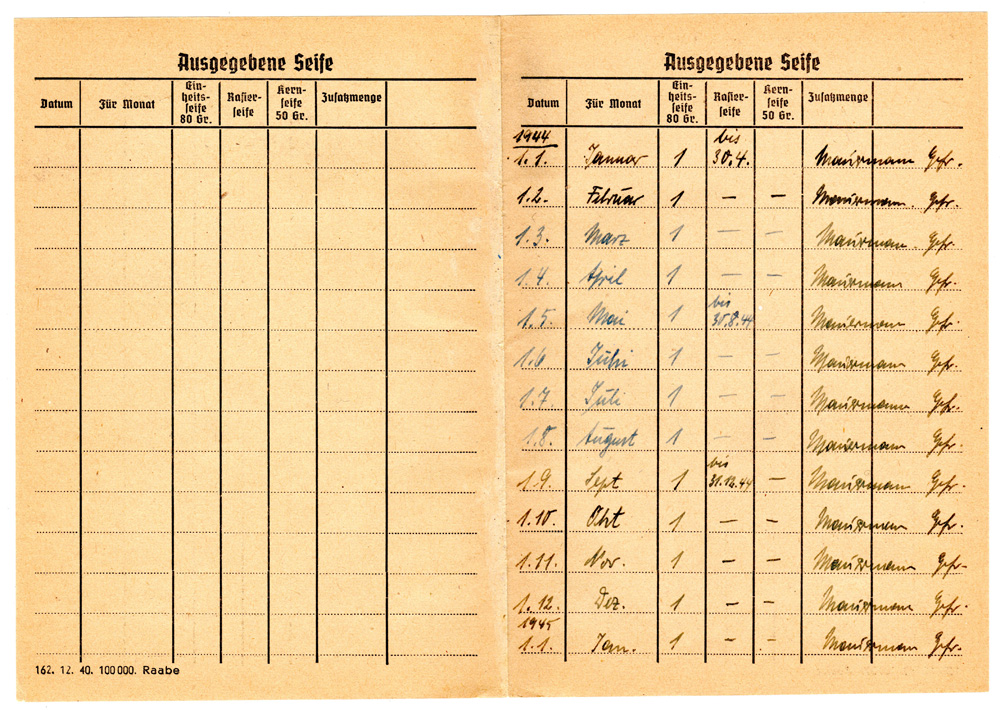 Ausgegebene Seife
Datum Für Monat Ein-heits-seife 80 Gr. Rasier-seife Kern-seife 50 Gr. Zusatzmenge
162. 12. 40. 100000. Raabe
Ausgegebene Seife
Datum Für Monat Ein-heits-seife 80 Gr. Rasier-seife Kern-seife 50 Gr. Zusatzmenge
1944
1.1. Januar 1 bis 30.4. Mauermann Gefr.
1.2. Februar 1 — — Mauermann. Gefr.
1.3. März 1 — — Mauermann. Gefr.
1.4. April 1 — — Mauermann Gefr.
1.5. Mai 1 bis 30.8.44 Mauermann Gefr.
1.6 Juni 1 — — Mauermann Gefr.
1.7. Juli 1 — — Mauermann Gefr.
1.8. August 1 — — Mauermann Gefr.
1.9. Sept 1 bis 31.12.44 — Mauermann Gefr.
1.10. Okt 1 — — Mauermann Gefr.
1.11. Nov. 1 — — Mauermann Gefr.
1.12. Dez. 1 — — Mauermann Gefr.
1945
1.1. Jan. 1 — — Mauermann Gefr.